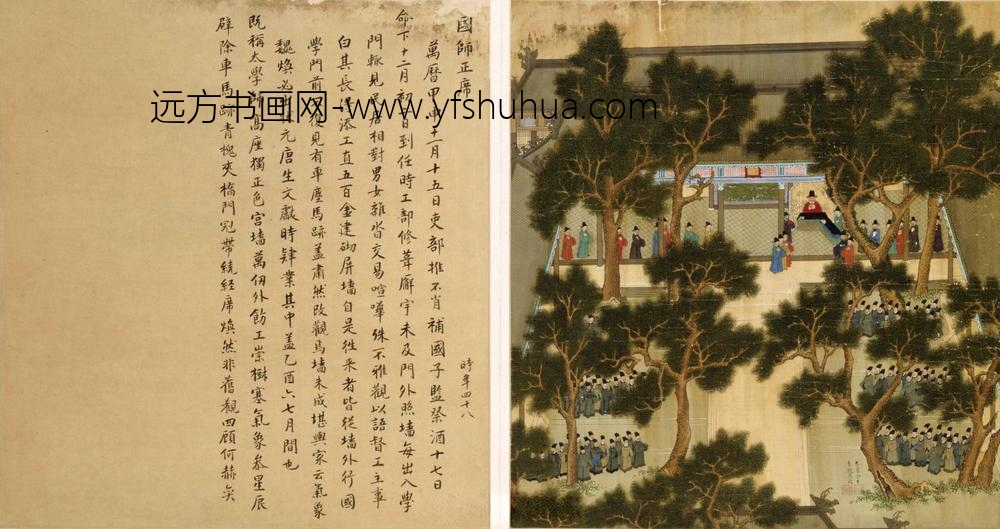 國師正席 時年四十八
萬曆甲申十一月十五日吏部推不肖補國子監祭酒十七日
命下十二月初日到任時工部修葺廨宇未及門外照墻每出入學
門輒見民居相對男女雜沓交易喧嘩殊不雅觀以語督工主事
白其長得添工直五百金建砌屏墻自是徃來者皆從墻外行國
學門前復見有車塵馬跡盖肅然改觀焉墻未成堪輿家云氣象
魏煥必出元唐生文獻時肄業其中盖乙酉六七月間也
既稱太學師高座獨正色宮墻萬仞外飭工崇樹塞氣象叅星辰
辟除車馬跡青槐夾橋門冠帶繞經席煥然非舊觀四顧何赫奕
远方书画网-www.yfshuhua.com